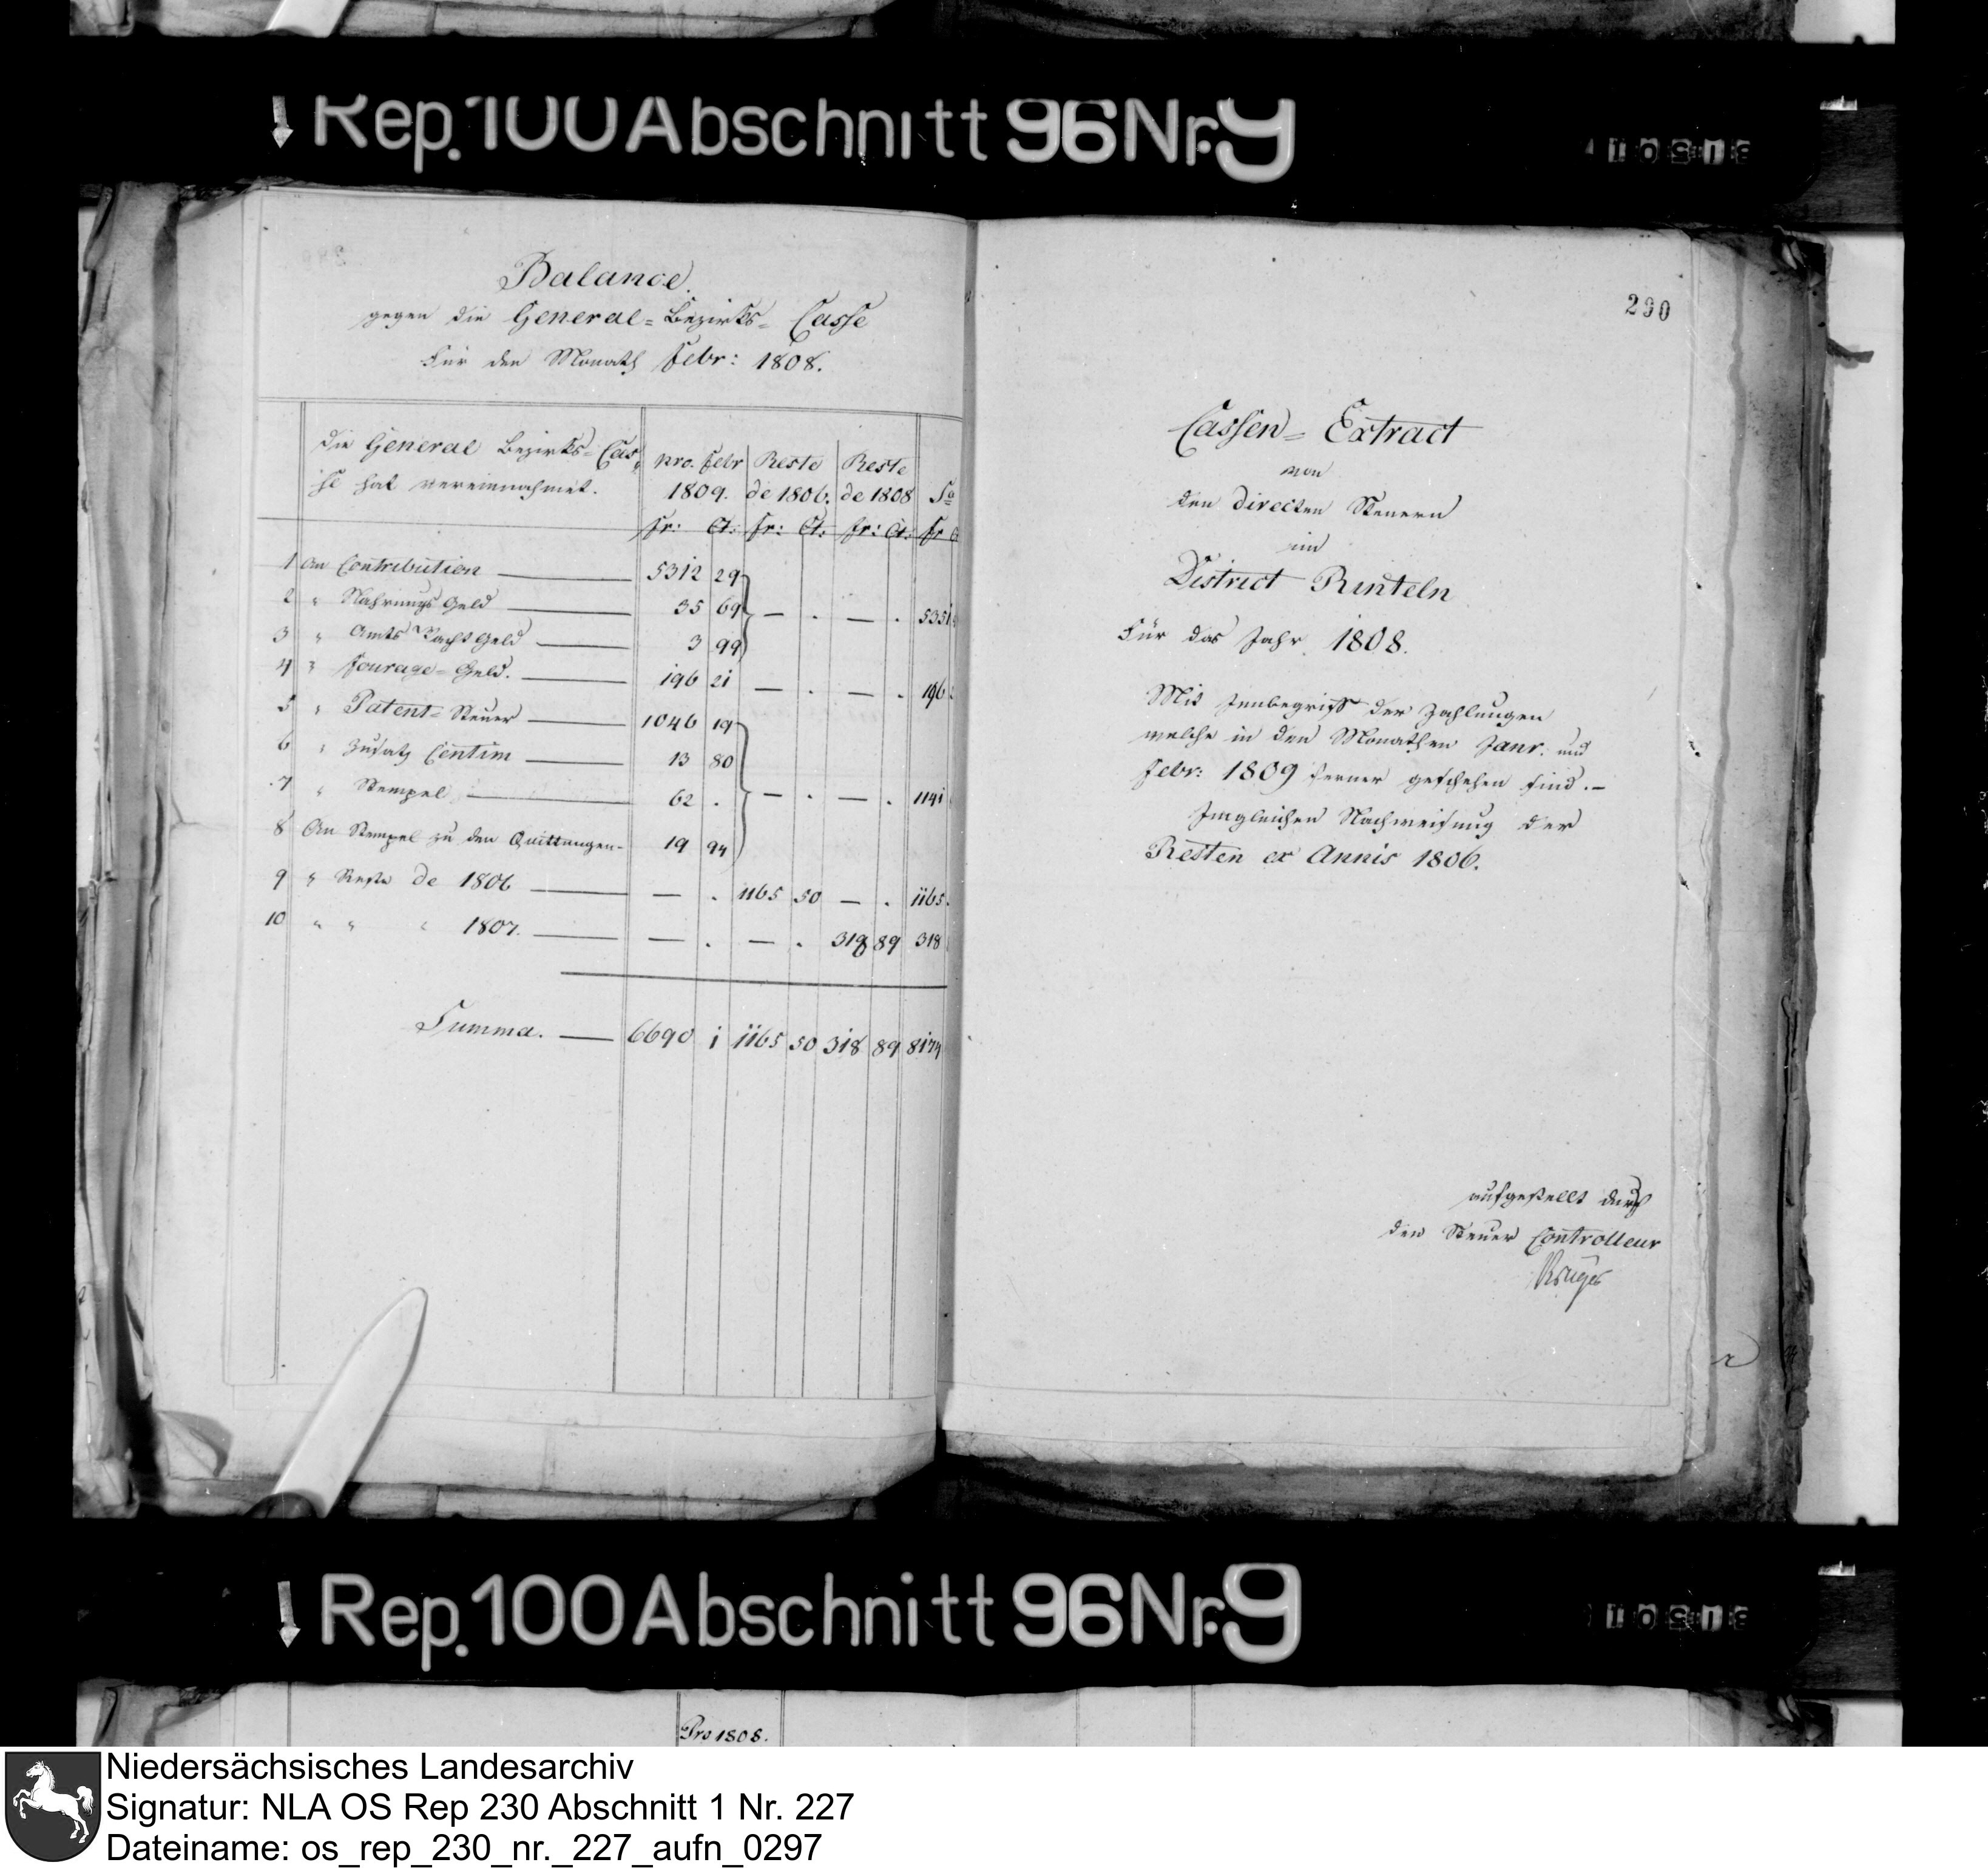 Rep. 100 Abschnitt 96 Nr. 9
Balance
gegen die General-Bezirks-Casse
Für den Monath Febr: 1808.
Die General Bezirks-Cas-
se hat vereinnahmet.
pro. Febr 1809. Reste de 1806. Reste de 1808 Sa
fr: Ct: fr: Ct: fr: Ct: fr C
1 An Contribution — 5312 29
2 " Nahrungs Geld — 35 69 — . — . 5351
3 " Amts Geld — 3 99
4 " Fourage-Geld. — 196 21 — . — . 196
5 " Patent-Steuer — 1046 19
6 " Zusatz Centim — 13 80
7 " Stempel — 62 . — . — . 1141
8 An Stempel zu den Quittungen- 19 94
9 " Reste de 1806 — — . 1165 50 — . 1165
10 " " " 1807. — — . — . 318 89 318
Summa. — 6690 1 1165 50 318 89 8174
290
Cassen-Extract
von
den directen Steuern
im
District Rinteln
Für das Jahr 1808.
Mit Innbegriff der Zahlungen
welche in den Monathen Janr. und
Febr: 1809 ferner geschehen sind.-
Imgleichen Nachweisung der
Resten ex Annis 1806.
aufgestellt durch
den Steuer Controlleur
Krüger
Rep. 100 Abschnitt 96 Nr. 9
Pro 1808.
Niedersächsisches Landesarchiv
Signatur: NLA OS Rep 230 Abschnitt 1 Nr. 227
Dateiname: os_rep_230_nr._227_aufn_0297